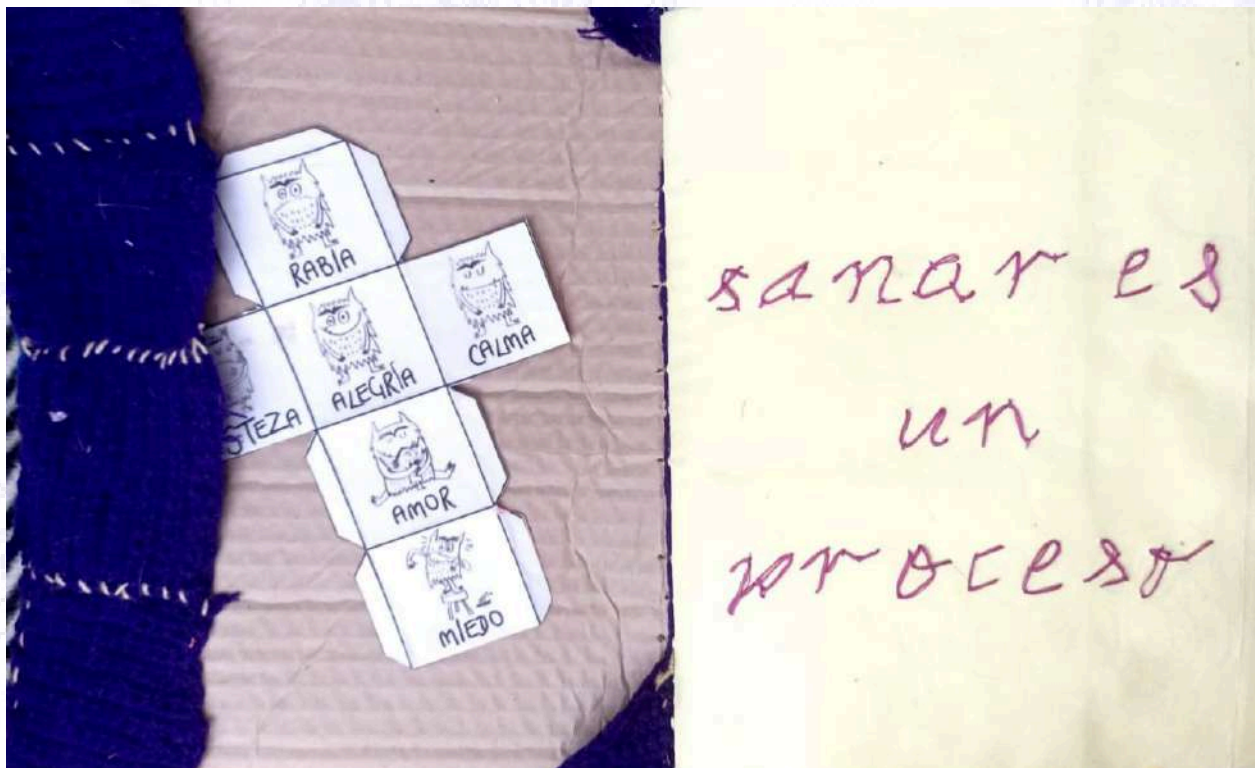 RABIA
CALMA
ALEGRÍA
TEZA
AMOR
MIEDO
sanar es
un
proceso